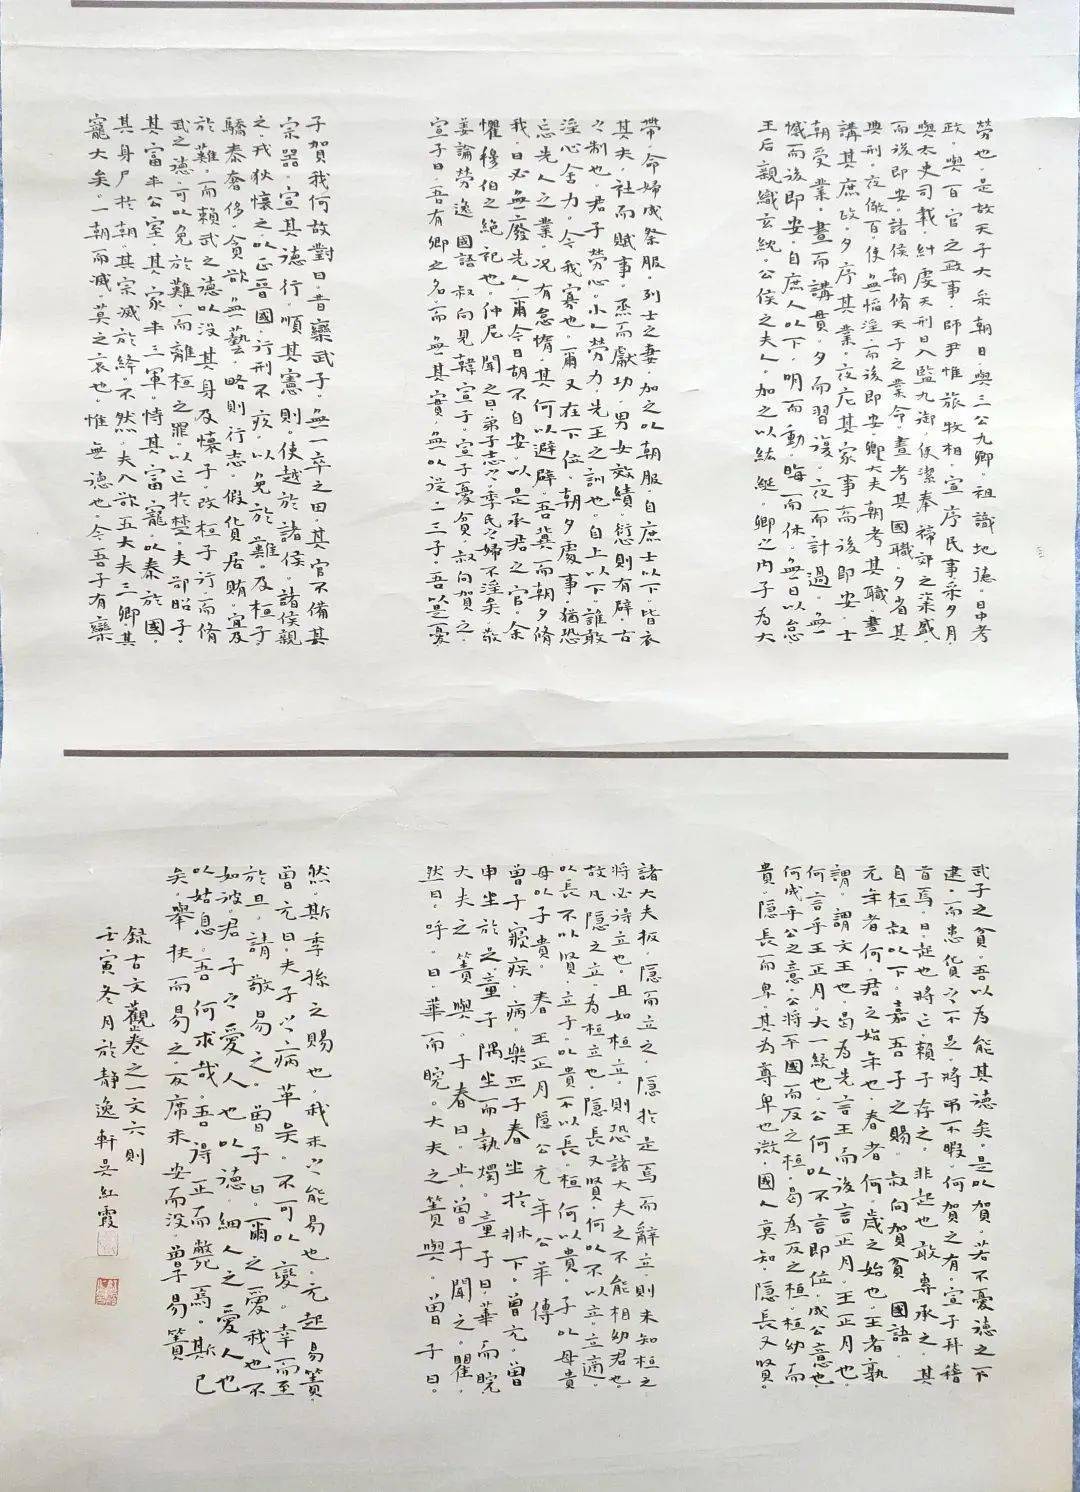 勞也。是故天子大采朝日。與三公九卿。祖識地德。日中考
政。與百官之政事。師尹惟旅牧相。宣序民事。采夕月。
與太史司載。糾虔天刑。日入監九御。使潔奉禘郊之粢盛。
而後即安。諸侯朝脩天子之業命。晝考其國職。夕省其
典刑。夜儆百使無慆淫。而後即安。卿大夫朝考其職。晝
講其庶政。夕序其業。夜庀其家事。而後即安。士
朝受業。晝而講貫。夕而習複。夜而計過。無
憾而後即安。自庶人以下。明而動。晦而休。無日以怠。
王后親織玄紞。公侯之夫人。加之以紘綖。卿之內子為大
帶。命婦成祭服。列士之妻。加之以朝服。自庶士以下。皆衣
其夫。社而賦事。烝而獻功。男女效績。愆則有辟。古
之制也。君子勞心。小人勞力。先王之訓也。自上以下。誰敢
淫心舍力。今我寡也。爾又在下位。朝夕處事。猶恐
忘先人之業。況有怠惰。其何以避辟。吾冀而朝夕脩
我。日必無廢先人。爾今日胡不自安。以是承君之官。余
懼穆伯之絕祀也。仲尼聞之曰。弟子志之。季氏之婦不淫矣。敬
姜論勞逸 國語 叔向見韓宣子。宣子憂貧。叔向賀之。
宣子曰。吾有卿之名。而無其實。無以從二三子。吾以是憂
子賀我何故。對曰。昔欒武子。無一卒之田。其官不備其
宗器。宣其德行。順其憲則。使越於諸侯。諸侯親
之。戎狄懷之。以正晉國。行刑不疚。以免於難。及桓子。
驕泰奢侈。貪欲無藝。略則行志。假貨居賄。宜及
於難。而賴武之德。以沒其身。及懷子。改桓子行。而脩
武之德。可以免於難。而離桓之罪。以亡於楚。夫郤昭子。
其富半公室。其家半三軍。恃其富寵。以泰於國。
其身尸於朝。其宗滅於絳。不然。夫八郤五大夫三卿。其
寵大矣。一朝而滅。莫之哀也。惟無德也。今吾子有欒
武子之貧。吾以為能其德矣。是以賀。若不憂德之不
建。而患貨之不足。將弔不暇。何賀之有。宣子拜稽
首焉。曰。起也將亡。賴子存之。非起也敢專承之。其
自桓叔以下。嘉吾子之賜。叔向賀貧 國語
元年者何。君之始年也。春者何。歲之始也。王者孰
謂。謂文王也。曷為先言王而後言正月。王正月也。
何言乎王正月。大一統也。公何以不言即位。成公意也。
何成乎公之意。公將平國而反之桓。曷為反之桓。桓幼而
貴。隱長而卑。其為尊卑也微。國人莫知。隱長又賢。
諸大夫扳隱而立之。隱於是焉而辭立。則未知桓之
將必得立也。且如桓立。則恐諸大夫之不能相幼君也。
故凡隱之立。為桓立也。隱長又賢。何以不以立。立適。
以長不以賢。立子。以貴不以長。桓何以貴。子以母貴
母以子貴。 春王正月 隱公元年 公羊傳
曾子寢疾。病。樂正子春坐於牀下。曾元。曾
申坐於足。童子隅坐而執燭。童子曰。華而睆。
大夫之簀與。子春曰。止。曾子聞之。瞿
然曰。呼。曰。華而睆。大夫之簀與。曾子曰。
然。斯季孫之賜也。我未之能易也。元起易簀。
曾元曰。夫子之病革矣。不可以變。幸而至
於旦。請敬易之。曾子曰。爾之愛我也不
如彼。君子之愛人也以德。細人之愛人也
以姑息。吾何求哉。吾得正而斃焉。斯已
矣。舉扶而易之。反席未安而沒。曾子易簀
錄古文觀卷之一文六則
壬寅冬月於靜逸軒吳紅霞